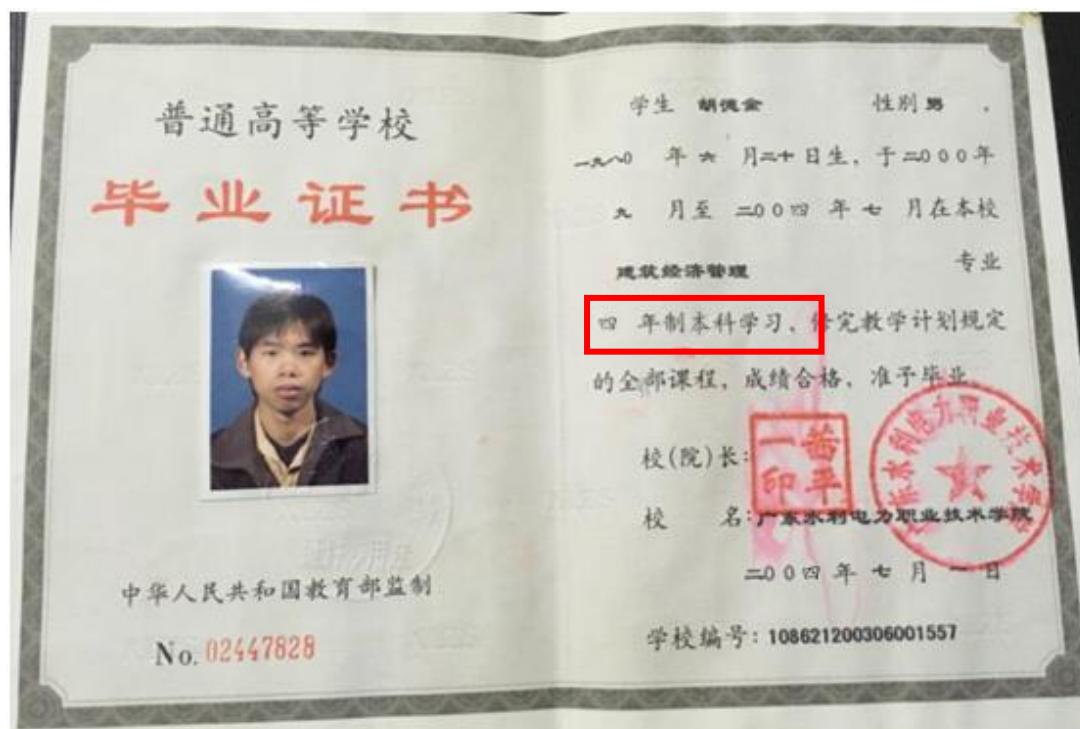 普通高等学校
毕业证书
中华人民共和国教育部监制
No. 02447828
学生 胡德金 性别 男 ,
一九八〇 年 六 月二十日生, 于二〇〇〇年
九 月至 二〇〇四 年 七 月在本校
建筑经济管理 专业
四 年制本科学习、修完教学计划规定
的全部课程, 成绩合格, 准予毕业。
校(院)长:
校 名: 广东水利电力职业技术学院
二〇〇四 年 七 月 一 日
学校编号: 108621200306001557